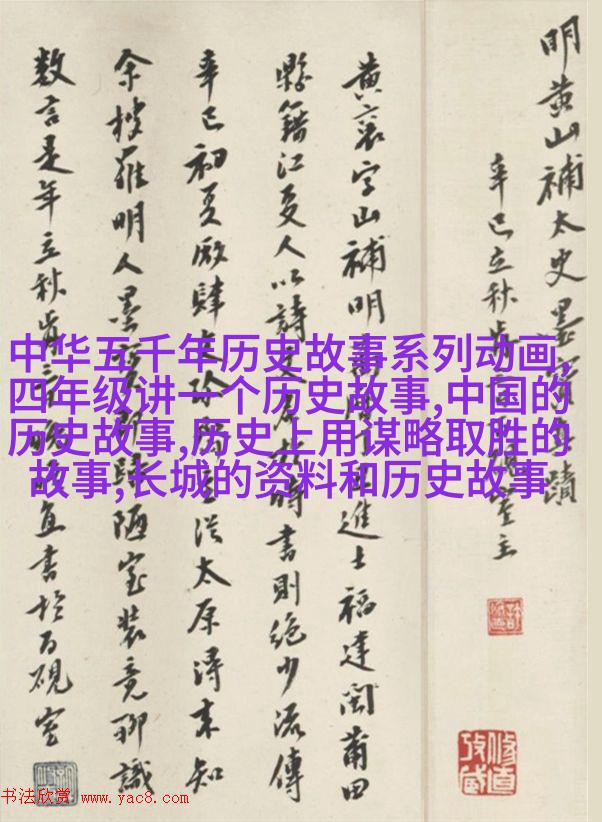 明黄山補太史墨寶真蹟
辛巳立秋室主
黄襄字山補明進士福建閩莆田
縣籍江夏人以詩文名於時書則絶少流傳
辛巳初夏廠肆從太原得來知
余搜羅明人墨寶陋室裝竟聊識
數言是年立秋宜書於百硯室
中华五千年历史故事系列动画,
四年级讲一个历史故事,中国的
历史故事,历史上用谋略取胜的
故事,长城的资料和历史故事
书法欣赏 www.yac8.com